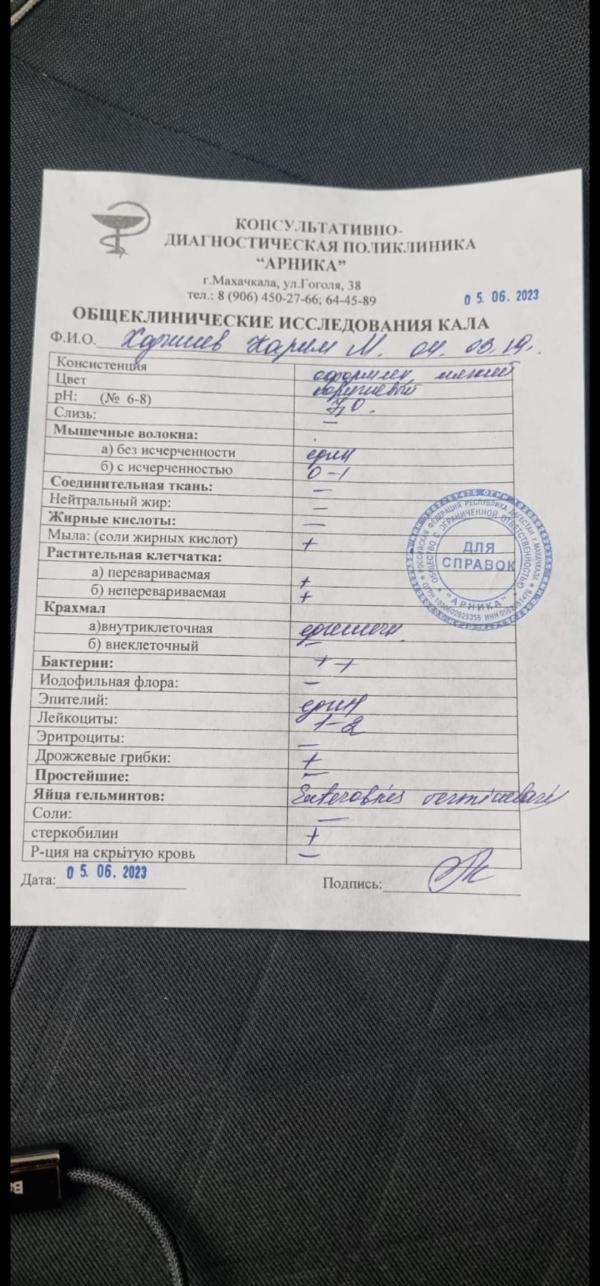 КОНСУЛЬТАТИВНО-
ДИАГНОСТИЧЕСКАЯ ПОЛИКЛИНИКА
“АРНИКА”
г.Махачкала, ул.Гоголя, 38
тел.: 8 (906) 450-27-66; 64-45-89
05. 06. 2023
ОБЩЕКЛИНИЧЕСКИЕ ИССЛЕДОВАНИЯ КАЛА
Ф.И.О. Карим М.
Консистенция оформлен, мягкий
Цвет коричневый
pH: (№ 6-8) 7,0
Слизь: –
Мышечные волокна:
а) без исчерченности един
б) с исчерченностью 0-1
Соединительная ткань: –
Нейтральный жир: –
Жирные кислоты: –
Мыла: (соли жирных кислот) +
Растительная клетчатка:
а) перевариваемая +
б) непереваривaемая +
Крахмал
а)внутриклеточная
б) внеклеточный –
Бактерии: + +
Иодофильная флора: –
Эпителий: един
Лейкоциты: 1-2
Эритроциты: –
Дрожжевые грибки: +
Простейшие: –
Яйца гельминтов: Enterobius vermicularis
Соли: –
стеркобилин +
Р-ция на скрытую кровь –
Дата: 05. 06. 2023
Подпись:
ДЛЯ
СПРАВОК
"АРНИКА"